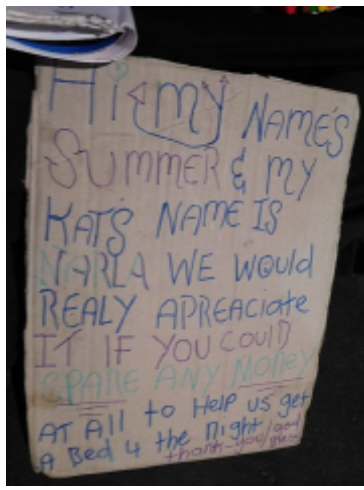 Hi my NAME'S
SUMMER & MY
KATS NAME IS
NARLA WE WOULD
REALY APREACIATE
IT IF YOU COULD
SPARE ANY MONEY
AT All to Help us get
A Bed 4 the night/god
thank-you/bless